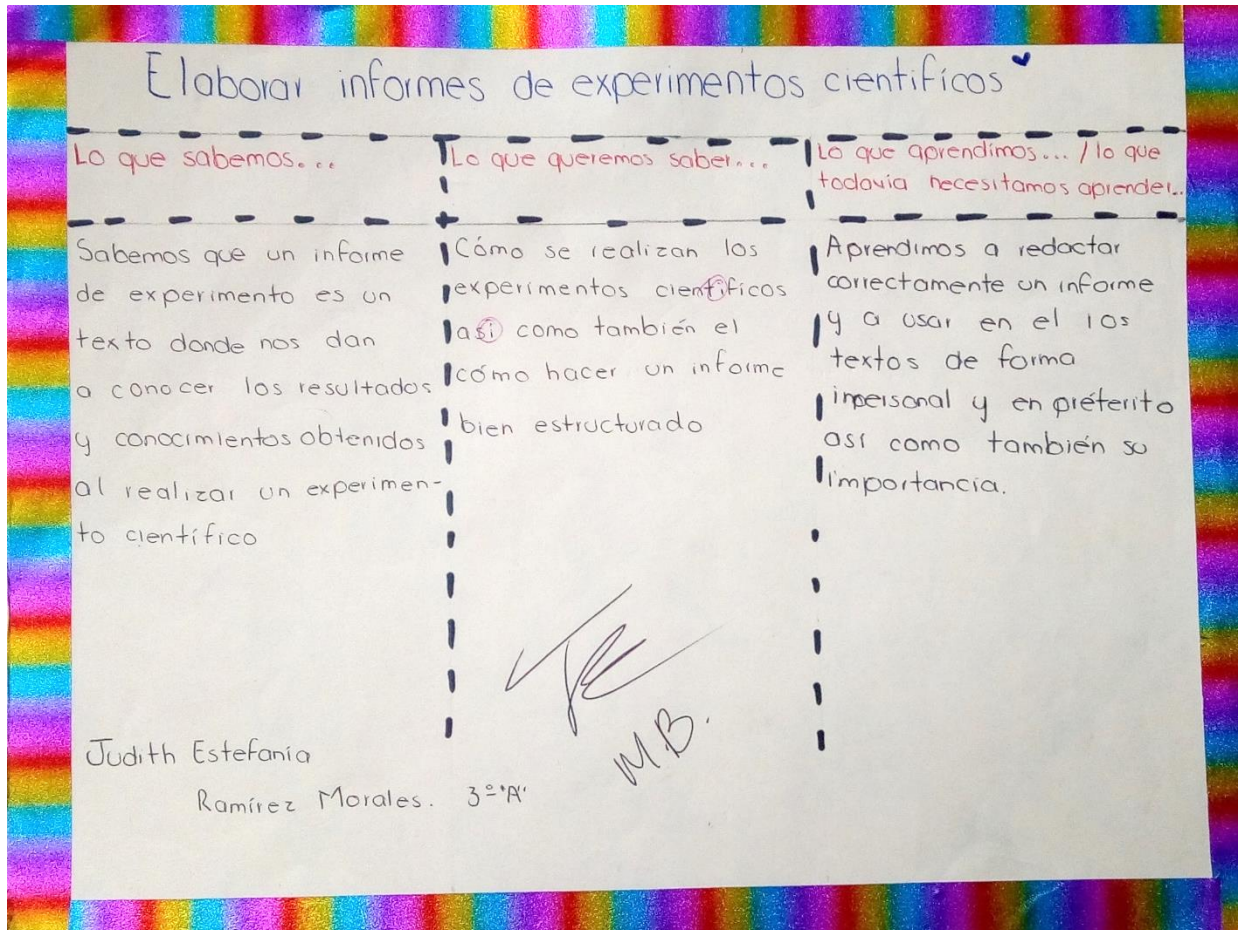 Elaborar informes de experimentos cientifícos
Lo que sabemos...
Lo que queremos saber...
Lo que aprendimos... / lo que
todavía necesitamos aprender..
Sabemos que un informe
de experimento es un
texto donde nos dan
a conocer los resultados
y conocimientos obtenidos
al realizar un experimen-
to científico
Cómo se realizan los
experimentos científicos
así como también el
cómo hacer un informe
bien estructurado
Aprendimos a redactar
correctamente un informe
y a usar en el los
textos de forma
impersonal y en préterito
así como también su
importancia.
M.B.
Judith Estefanía
Ramírez Morales. 3º "A"